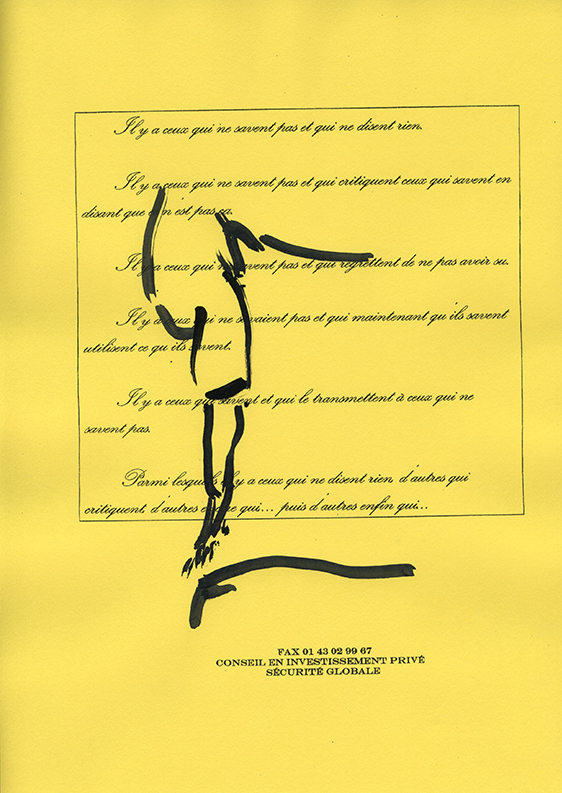 Il y a ceux qui ne savent pas et qui ne disent rien.
Il y a ceux qui ne savent pas et qui critiquent ceux qui savent en
disant que ce n'est pas ça.
Il y a ceux qui ne savent pas et qui regrettent de ne pas avoir su.
Il y a ceux qui ne savaient pas et qui maintenant qu'ils savent
utilisent ce qu'ils savent.
Il y a ceux qui savent et qui le transmettent à ceux qui ne
savent pas.
Parmi lesquels il y a ceux qui ne disent rien, d'autres qui
critiquent, d'autres encore qui... puis d'autres enfin qui...
FAX 01 43 02 99 67
CONSEIL EN INVESTISSEMENT PRIVÉ
SÉCURITÉ GLOBALE